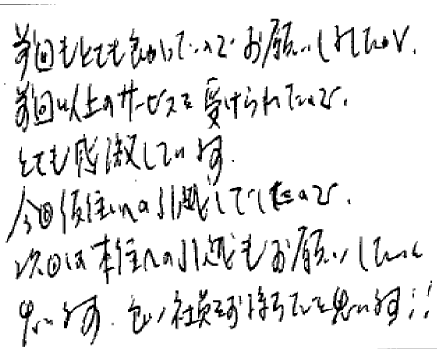 前回もとても良かったのでお願いしましたが、
前回以上のサービスを受けられたので、
とても感激しています。
今回仮住いへの引越しでしたので、
次回は本住への引越もお願いしたいと
思います。良い社員をお持ちだと思います!!